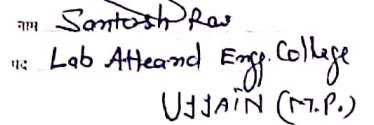 नाम Santosh Rav
पद Lab Atteand Engg. College
UJJAIN (M.P.)